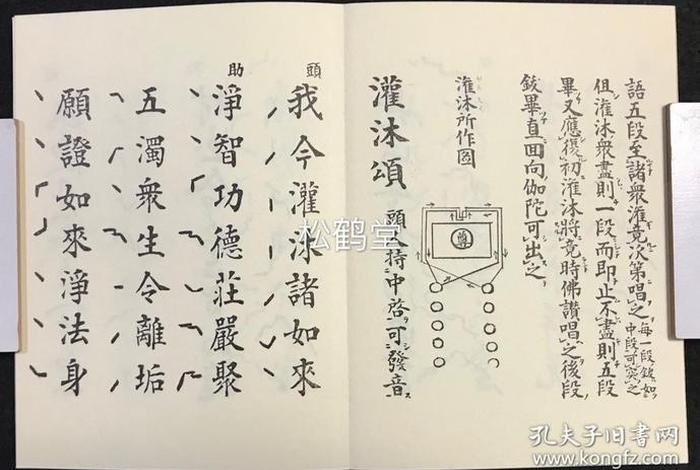 語五段至諸衆灌竟次第唱之每一段鈸如中段可突之
但灌沐衆盡則一段而即止不盡則五段
畢又應復初灌沐將竟時佛讃唱之後段
鈸畢直回向伽陀可出之
灌沐所作圖
尊
灌沐頌 頭人持中啓可發音
頭
我今灌沐諸如來
助
淨智功德莊嚴聚
五濁衆生令離垢
願證如來淨法身
松鹤堂
孔夫子旧书网
www.kongfz.com